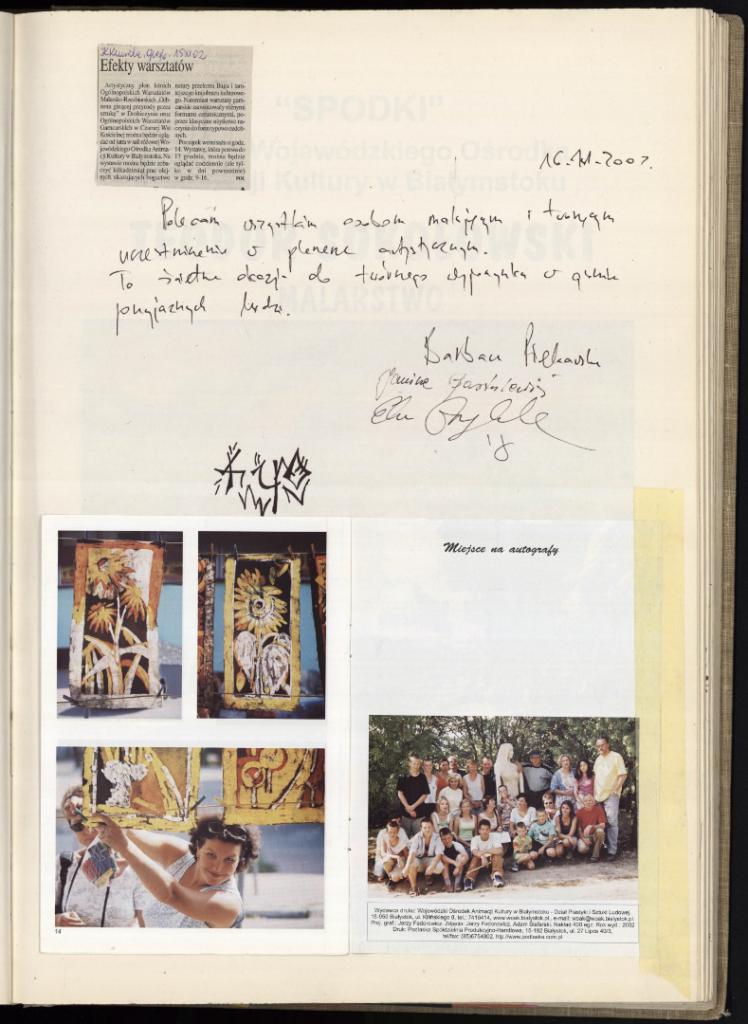 15 XI 02
Efekty warsztatów
Artystyczny plon letnich
Ogólnopolskich Warsztatów
Malarsko-Rzeźbiarskich „Odb
przyrody przez
sztukę" w Drohiczynie oraz
Ogólnopolskich Warsztatów
Garncarskich w Czarnej Wsi
Kościelnej można będzie oglą-
dać od jutra w sali różowej Wo-
jewódzkiego Ośrodka Animac-
ji Kultury w Białymstoku. Na
wystawie można będzie zoba-
czyć kilkadziesiąt prac olej-
nych ukazujących bogactwo
natury przełomu Bugu i tam-
tejszego krajobrazu kulturowe-
go. Natomiast warsztaty garn-
carskie zaowocowały różnymi
formami ceramicznymi, po-
przez klasyczne użytkowe na-
czynia do form typowo ozdob-
nych.
Początek wernisażu o godz.
14. Wystawę, która potrwa do
13 grudnia, można będzie
oglądać codziennie (ale tyl-
ko w dni powszednie)
w godz. 9-16.
"SPODKI"
Wojewódzkiego Ośrodka
Animacji Kultury w Białymstoku
SOKOŁOWSKI
MALARSTWO
Polecam wszystkim osobom malującym i tworzącym
uczestnictwo w plenerze artystycznym.
To świetna okazja do twórczego wypoczynku w gronie
przyjaznych ludzi.
Barbara
Janina
Miejsce na autografy
14
Wydawca druku: Wojewódzki Ośrodek Animacji Kultury w Białymstoku - Dział Plastyki i Sztuki Ludowej,
15-950 Białystok, ul. Kilińskiego 8, tel. 7416414, www.woak.bialystok.pl, e-mail: woak@woak.bialystok.pl
Proj. graf.: Jerzy Fedorowicz. Zdjęcia: Jerzy Fedorowicz, Adam Ślefarski. Nakład 400 egz. Rok wyd.: 2002
Druk: Podlaska Spółdzielnia Produkcyjno-Handlowa, 15-182 Białystok, ul. 27 Lipca 40/3,
tel/fax: (85)6754802, http://www.podlaska.com.pl